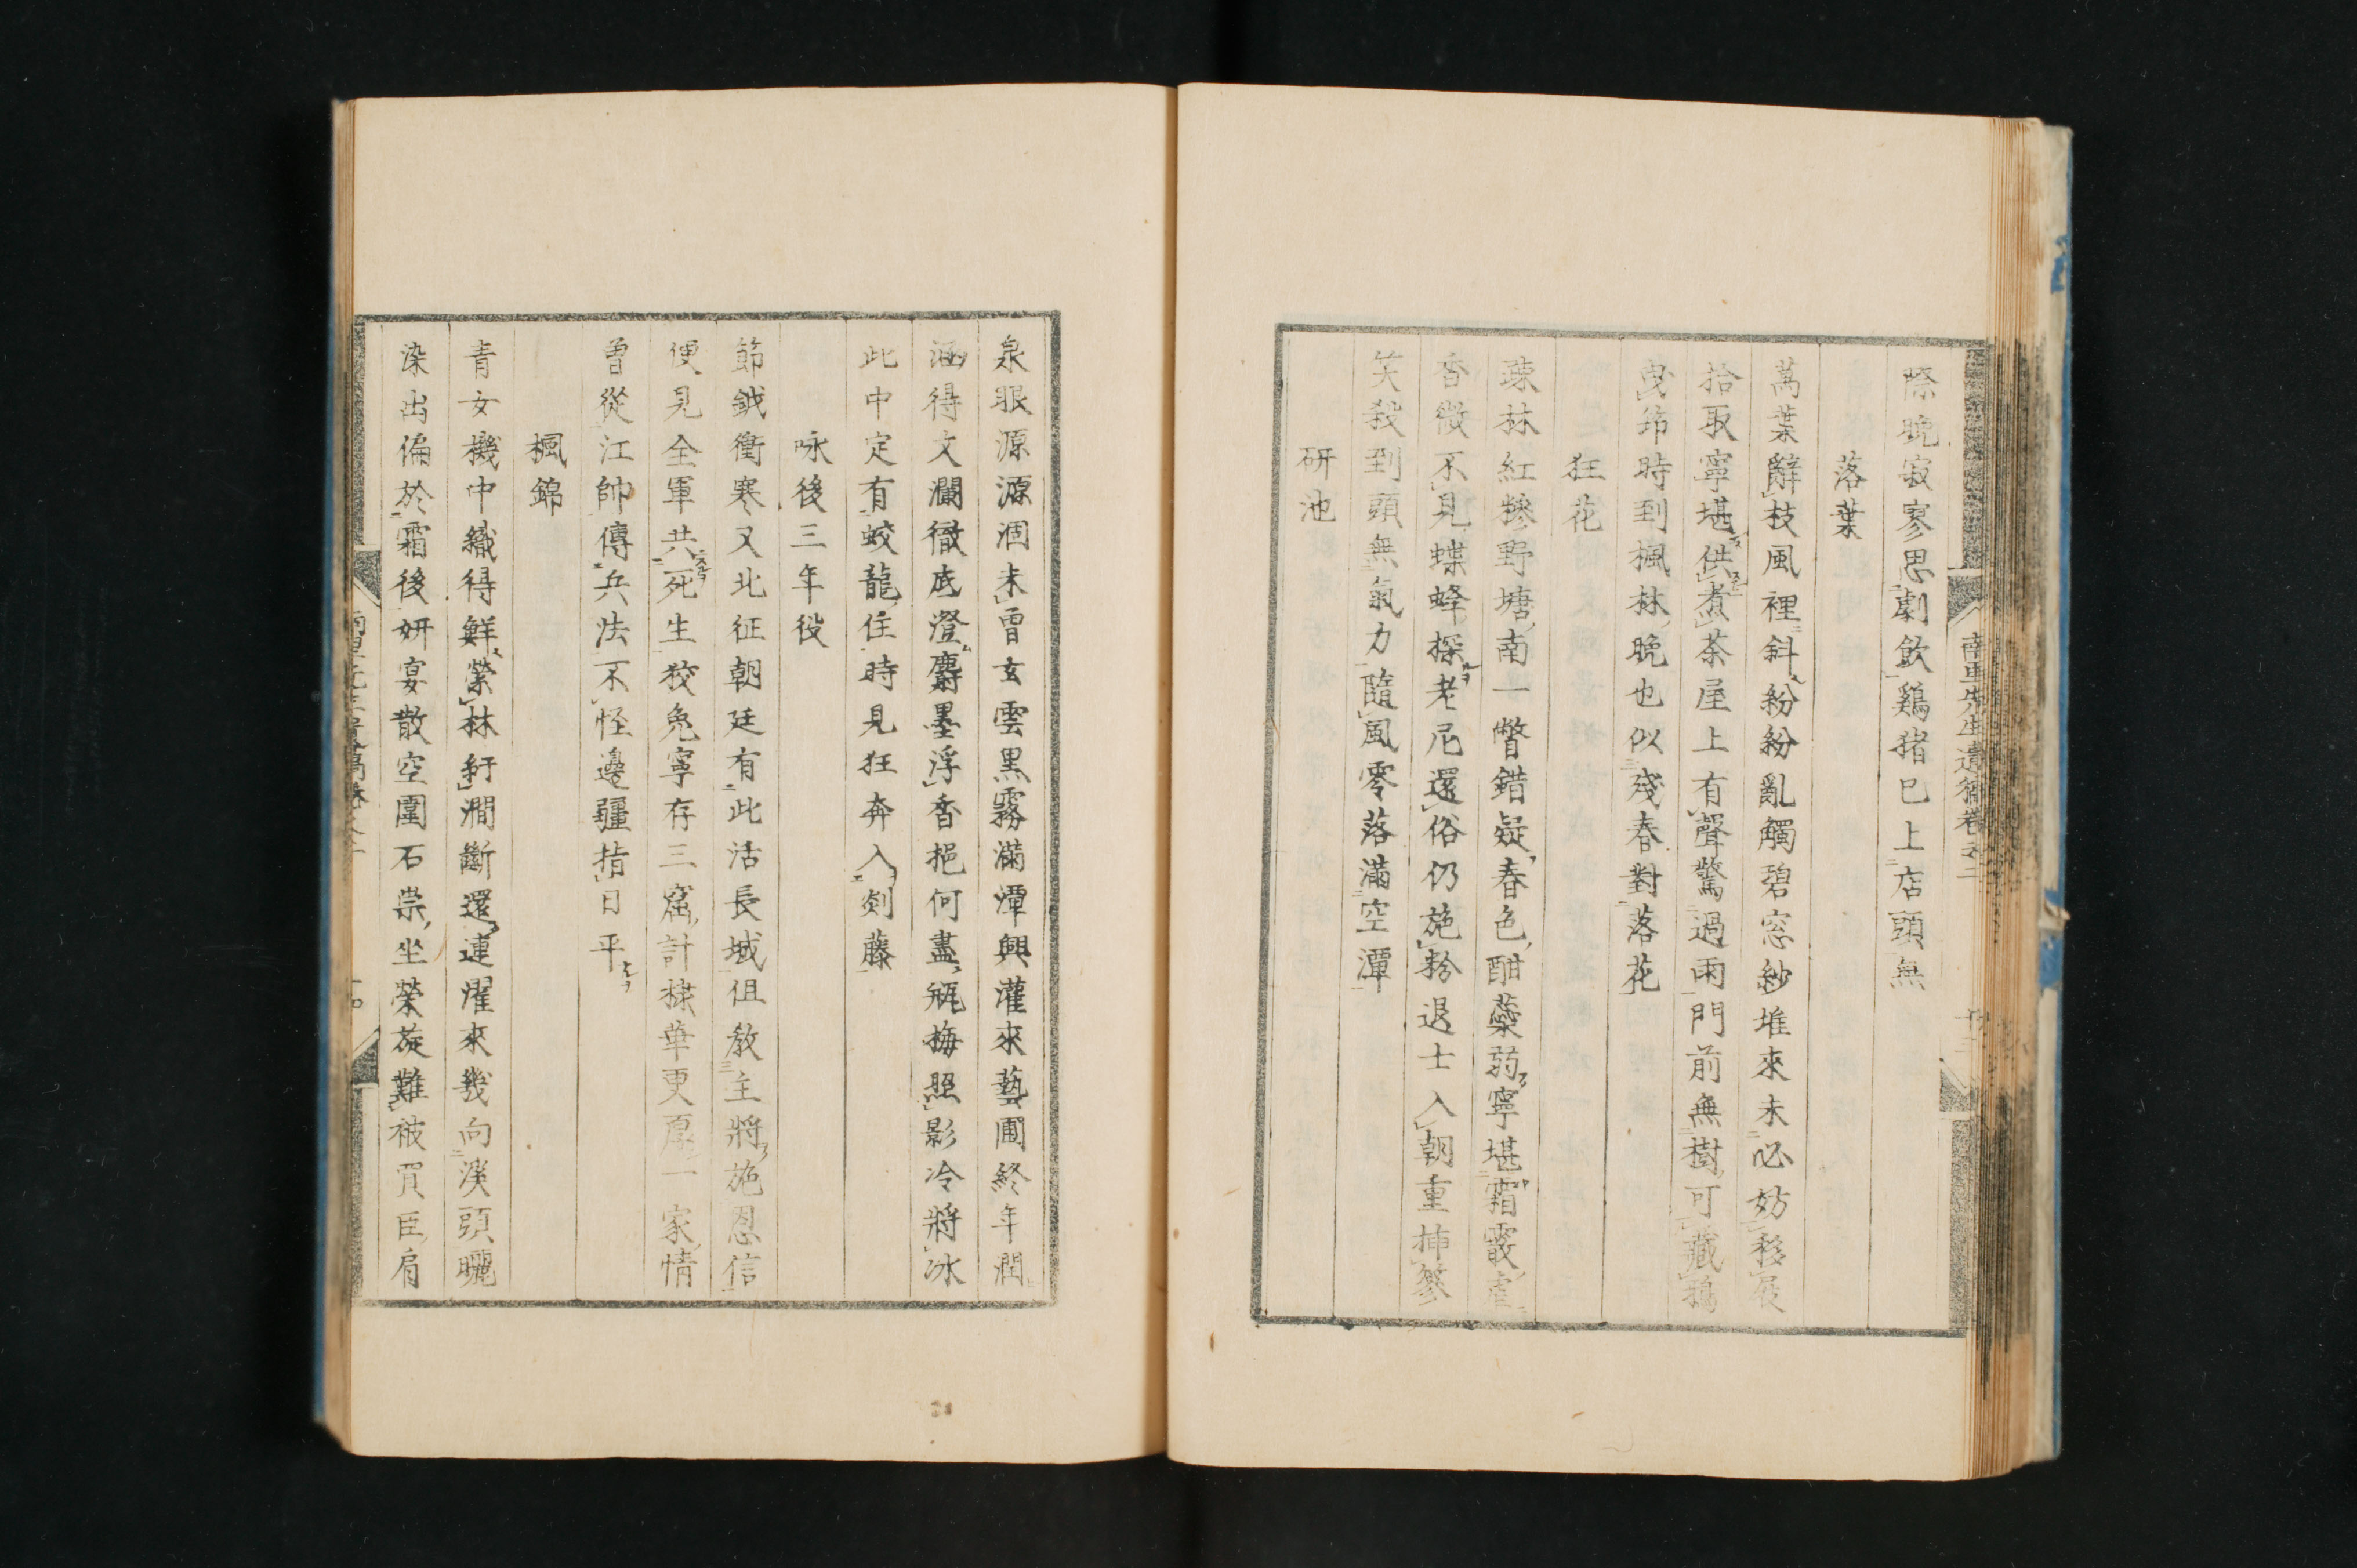 際晩寂寥思劇飲鷄猪已上店頭無
落葉
萬葉辭枝風裡斜紛紛亂觸碧窓紗堆來未必妨移屐
拾取寧堪供煮茶屋上有聲驚過雨門前無樹可藏鴉
曳筇時到楓林晩也似殘春對落花
狂花
疎林紅糝野塘南一瞥錯疑春色酣蘂弱寧堪霜霰虐
香微不見蝶蜂探老尼還俗仍施粉退士入朝重挿簪
笑殺到頭無氣力隨風零落滿空潭
研池
泉眼源源涸未曾玄雲黒霧滿潭興灌來藝圃終年潤
涵得文瀾徹底澄麝墨浮香挹何盡瓶梅照影冷將冰
此中定有蛟龍住時見狂奔入剡藤
咏後三年役
節鉞衝寒又北征朝廷有此活長城但教主將施恩信
便見全軍共死生狡兔寧存三窟計棣華更厚一家情
曽從江帥傳兵法不怪邊疆指日平
楓錦
青女機中織得鮮縈林紆澗斷還連濯來幾向溪頭曬
染出偏於霜後妍宴散空圍石崇坐榮旋難被買臣肩
南里先生遺稿卷之二